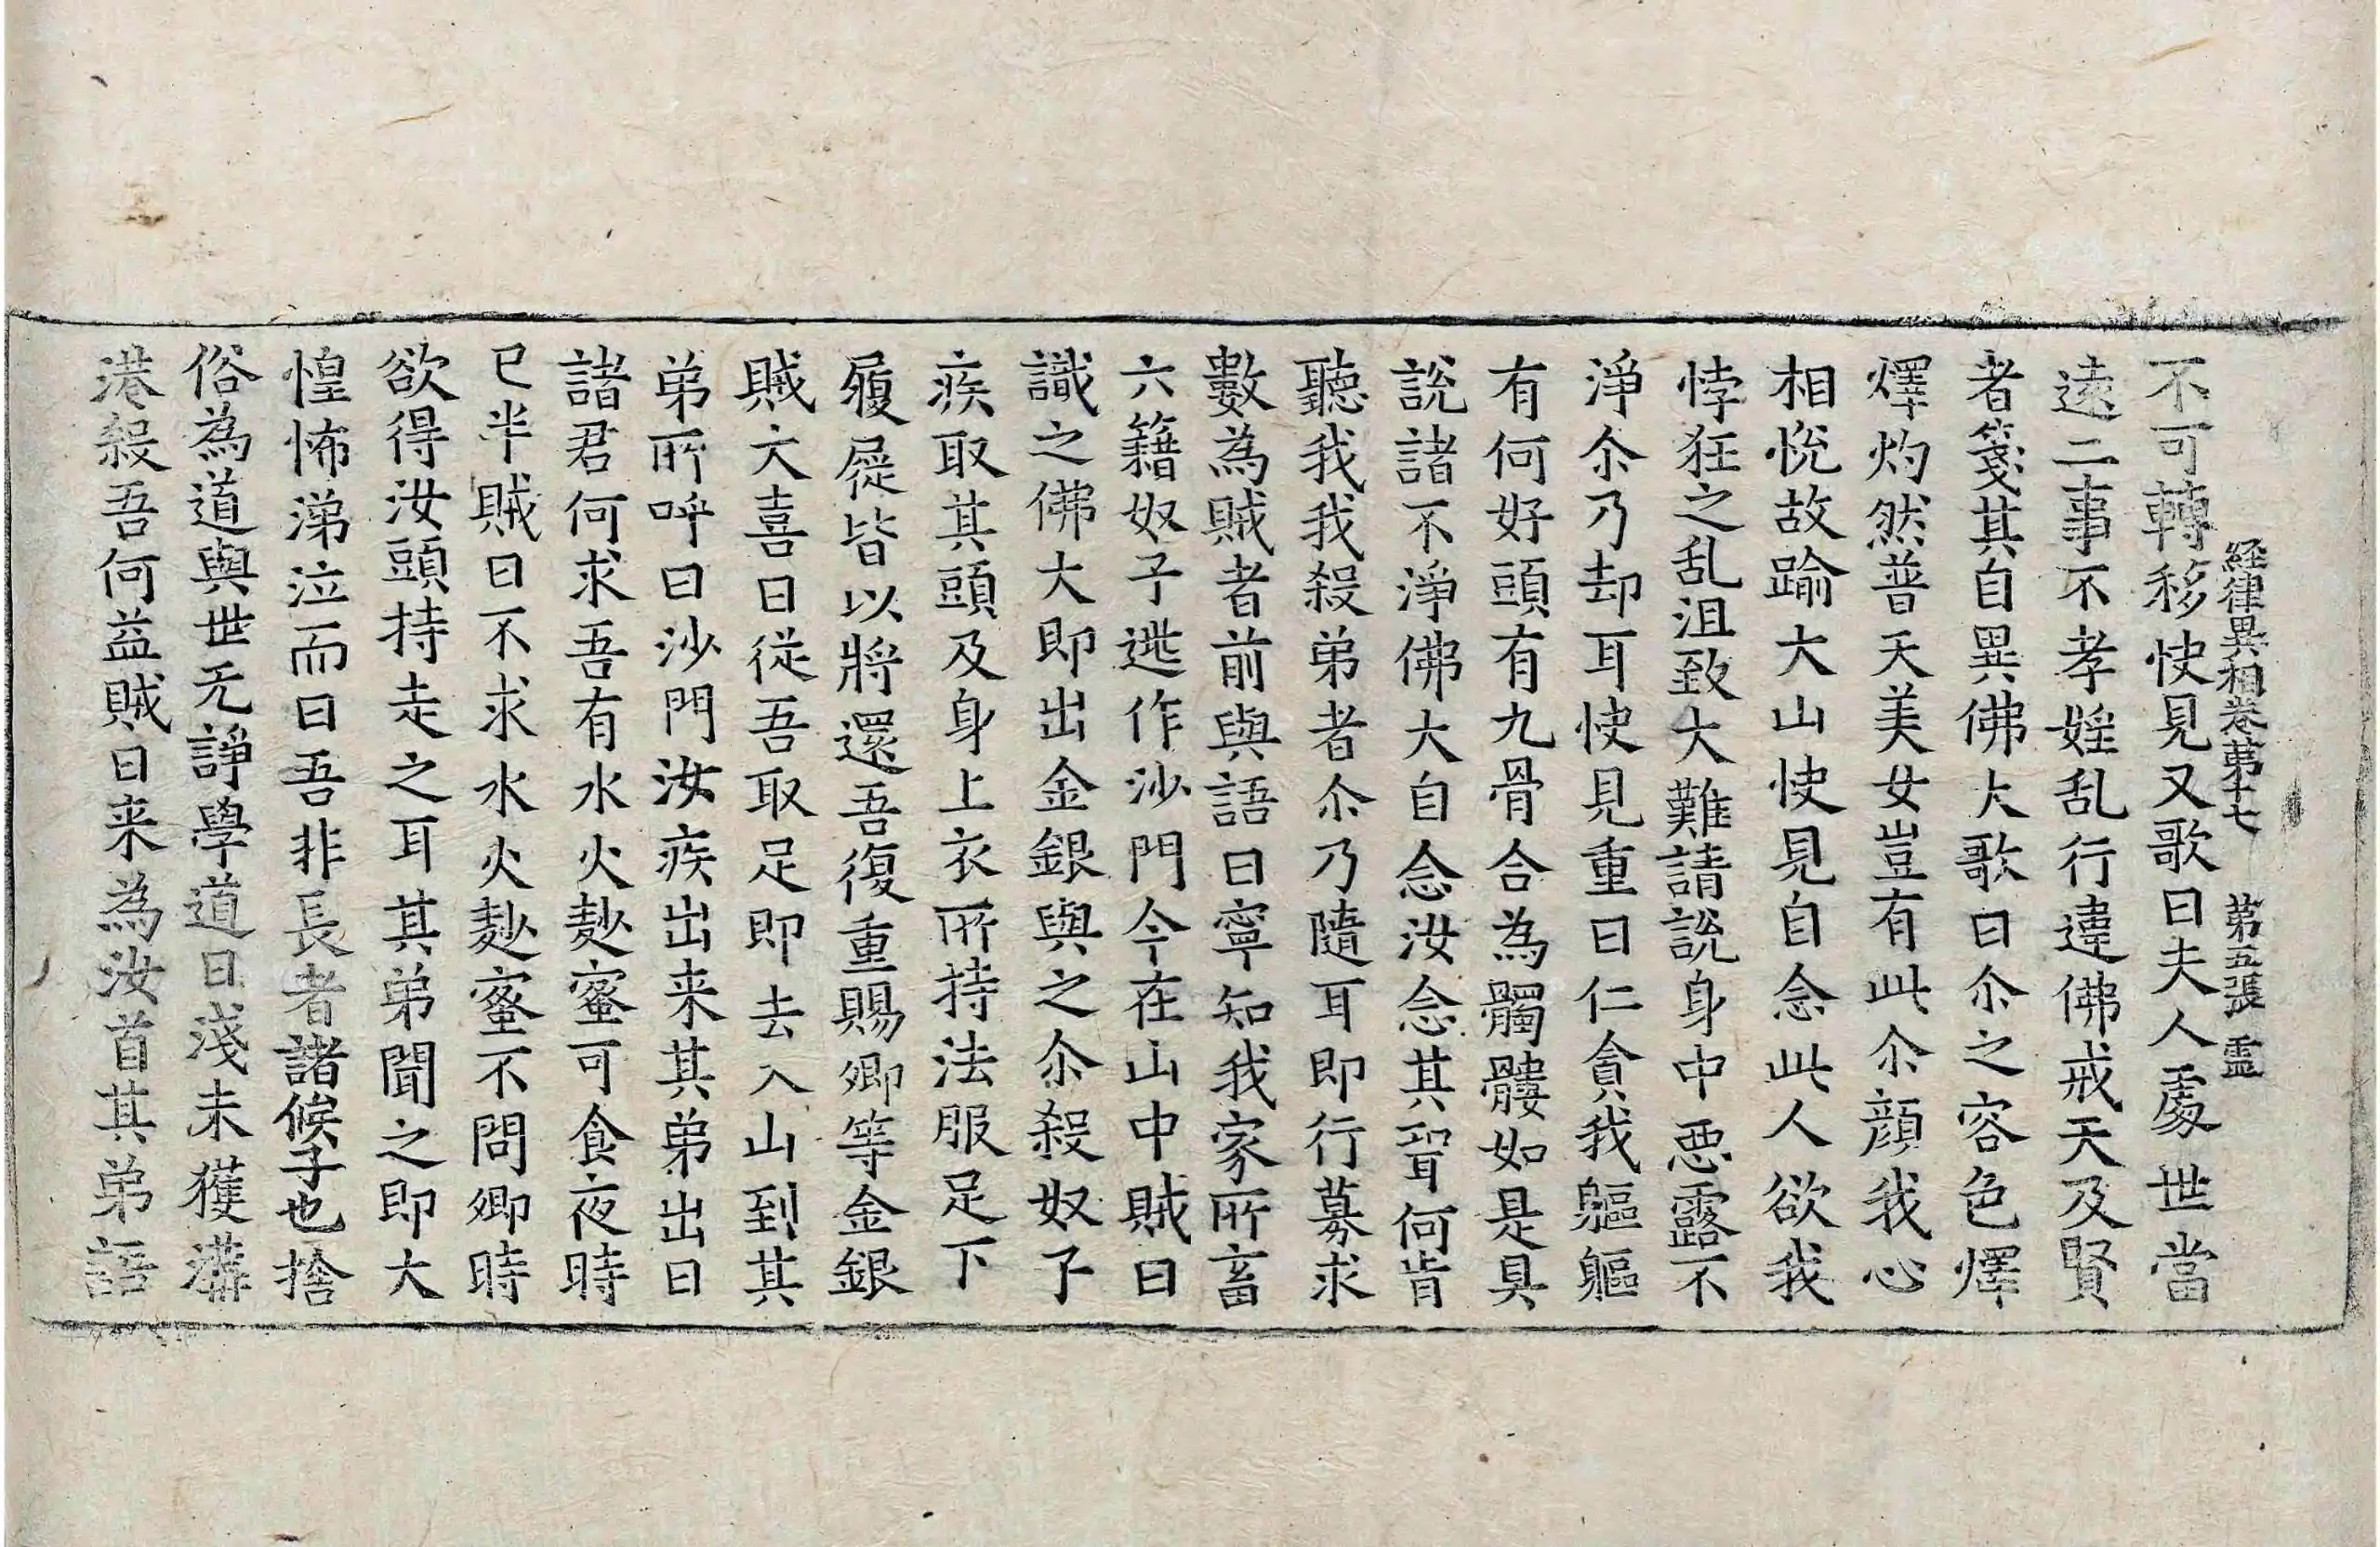 不可轉移快見又歌曰夫人處世當
経律異相卷苐十七　苐五張　霊
遠二事不孝婬乱行違佛戒天及賢
者箋其自異佛大歌曰尒之容色燡
燡灼然普天美女豈有此尒顔我心
相悅故踰大山快見自念此人欲我
悖狂之乱沮致大難請說身中惡露不
淨尒乃却耳快見重曰仁貪我軀軀
有何好頭有九骨合為髑髏如是具
說諸不淨佛大自念汝念其聟何肯
聽我我殺弟者尒乃隨耳即行募求
數為賊者前與語曰寧知我家所畜
六籍奴子逃作沙門今在山中賊曰
識之佛大即出金銀與之尒殺奴子
疾取其頭及身上衣所持法服足下
履屣皆以將還吾復重賜卿等金銀
賊大喜曰從吾取足即去入山到其
弟所呼曰沙門汝疾出来其弟出曰
諸君何求吾有水火麨蜜可食夜時
已半賊曰不求水火麨蜜不問卿時
欲得汝頭持走之耳其弟聞之即大
惶怖涕泣而曰吾非長者諸候子也捨
俗為道與世无諍學道日淺未獲溝
港殺吾何益賊曰来為汝首其弟語